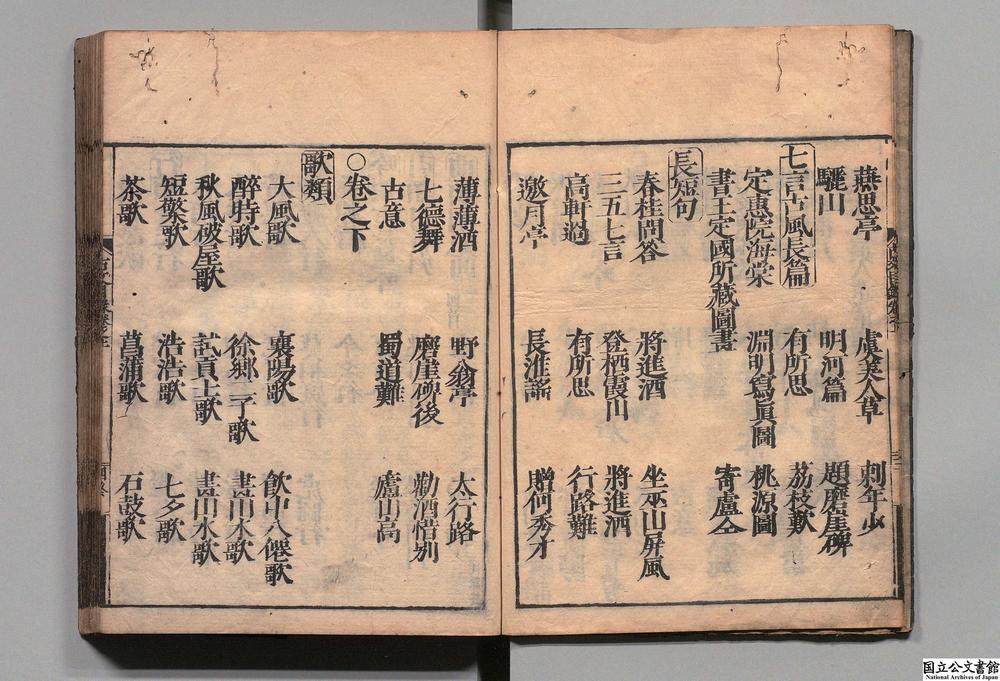 燕思亭 虞美人草 刺年少
驪山 明河篇 題磨崖碑
七言古風長篇 有所思 荔枝歎
定惠院海棠 淵明寫眞圖 桃源圖
書王定國所藏圖畫 寄盧仝
長短句
春桂問答 將進酒 坐巫山屏風
三五七言 登栖霞山 將進酒
高軒過 有所思 行路難
邀月亭 長淮謠 贈何秀才
薄薄酒 野翁亭 太行路
七德舞 磨崖碑後 勸酒惜别
古意 蜀道難 廬山高
○卷之下
歌類
大風歌 襄陽歌 飲中八僊歌
醉時歌 徐卿二子歌 畫山水歌
秋風破屋歌 試貢士歌 畫山水歌
短檠歌 浩浩歌 七夕歌
茶歌 菖蒲歌 石鼓歌
国立公文書館
National Archives of Japan